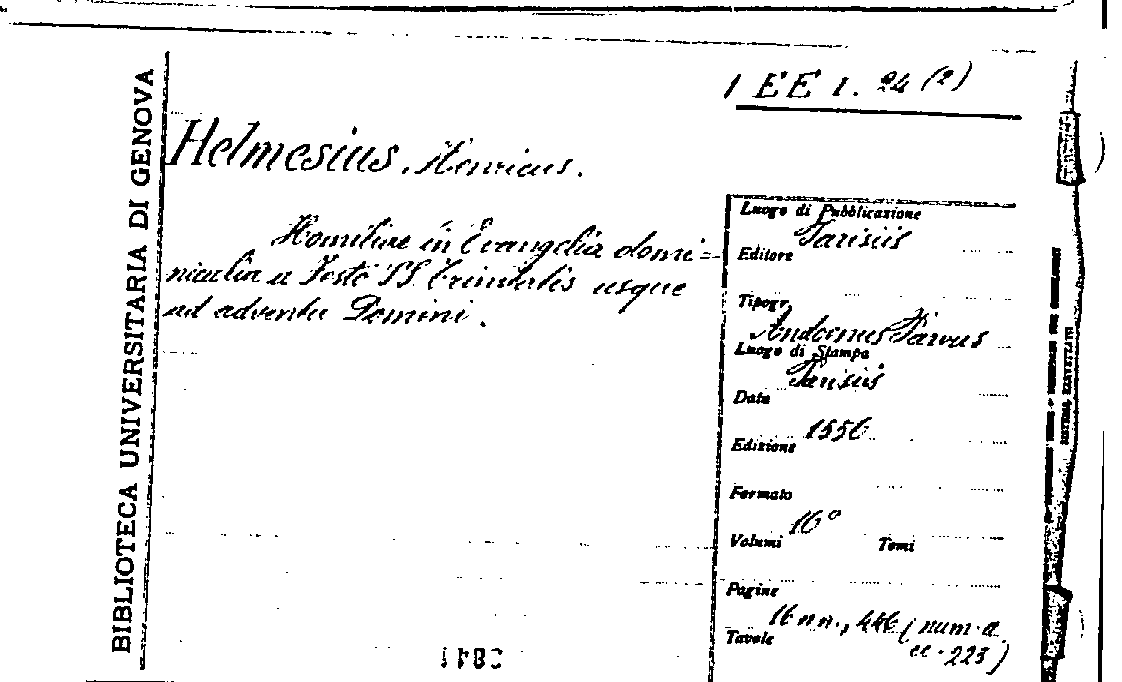 1 EE 1. 24 (2)
BIBLIOTECA UNIVERSITARIA DI GENOVA
Helmesius. Henricus.
Homiliae in Evangelia domi=
nicalia a Festo SS. Trinitatis usque
ad adventu Domini.
Luogo di Pubblicazione
Parisiis
Editore
Tipogr.
Andoenus Parvus
Luogo di Stampa
Parisiis
Data
1556
Edizione
Formato
16°
Volumi Tomi
Pagine
16 nn., 446 ( num. a
cc. 223)
Tavole